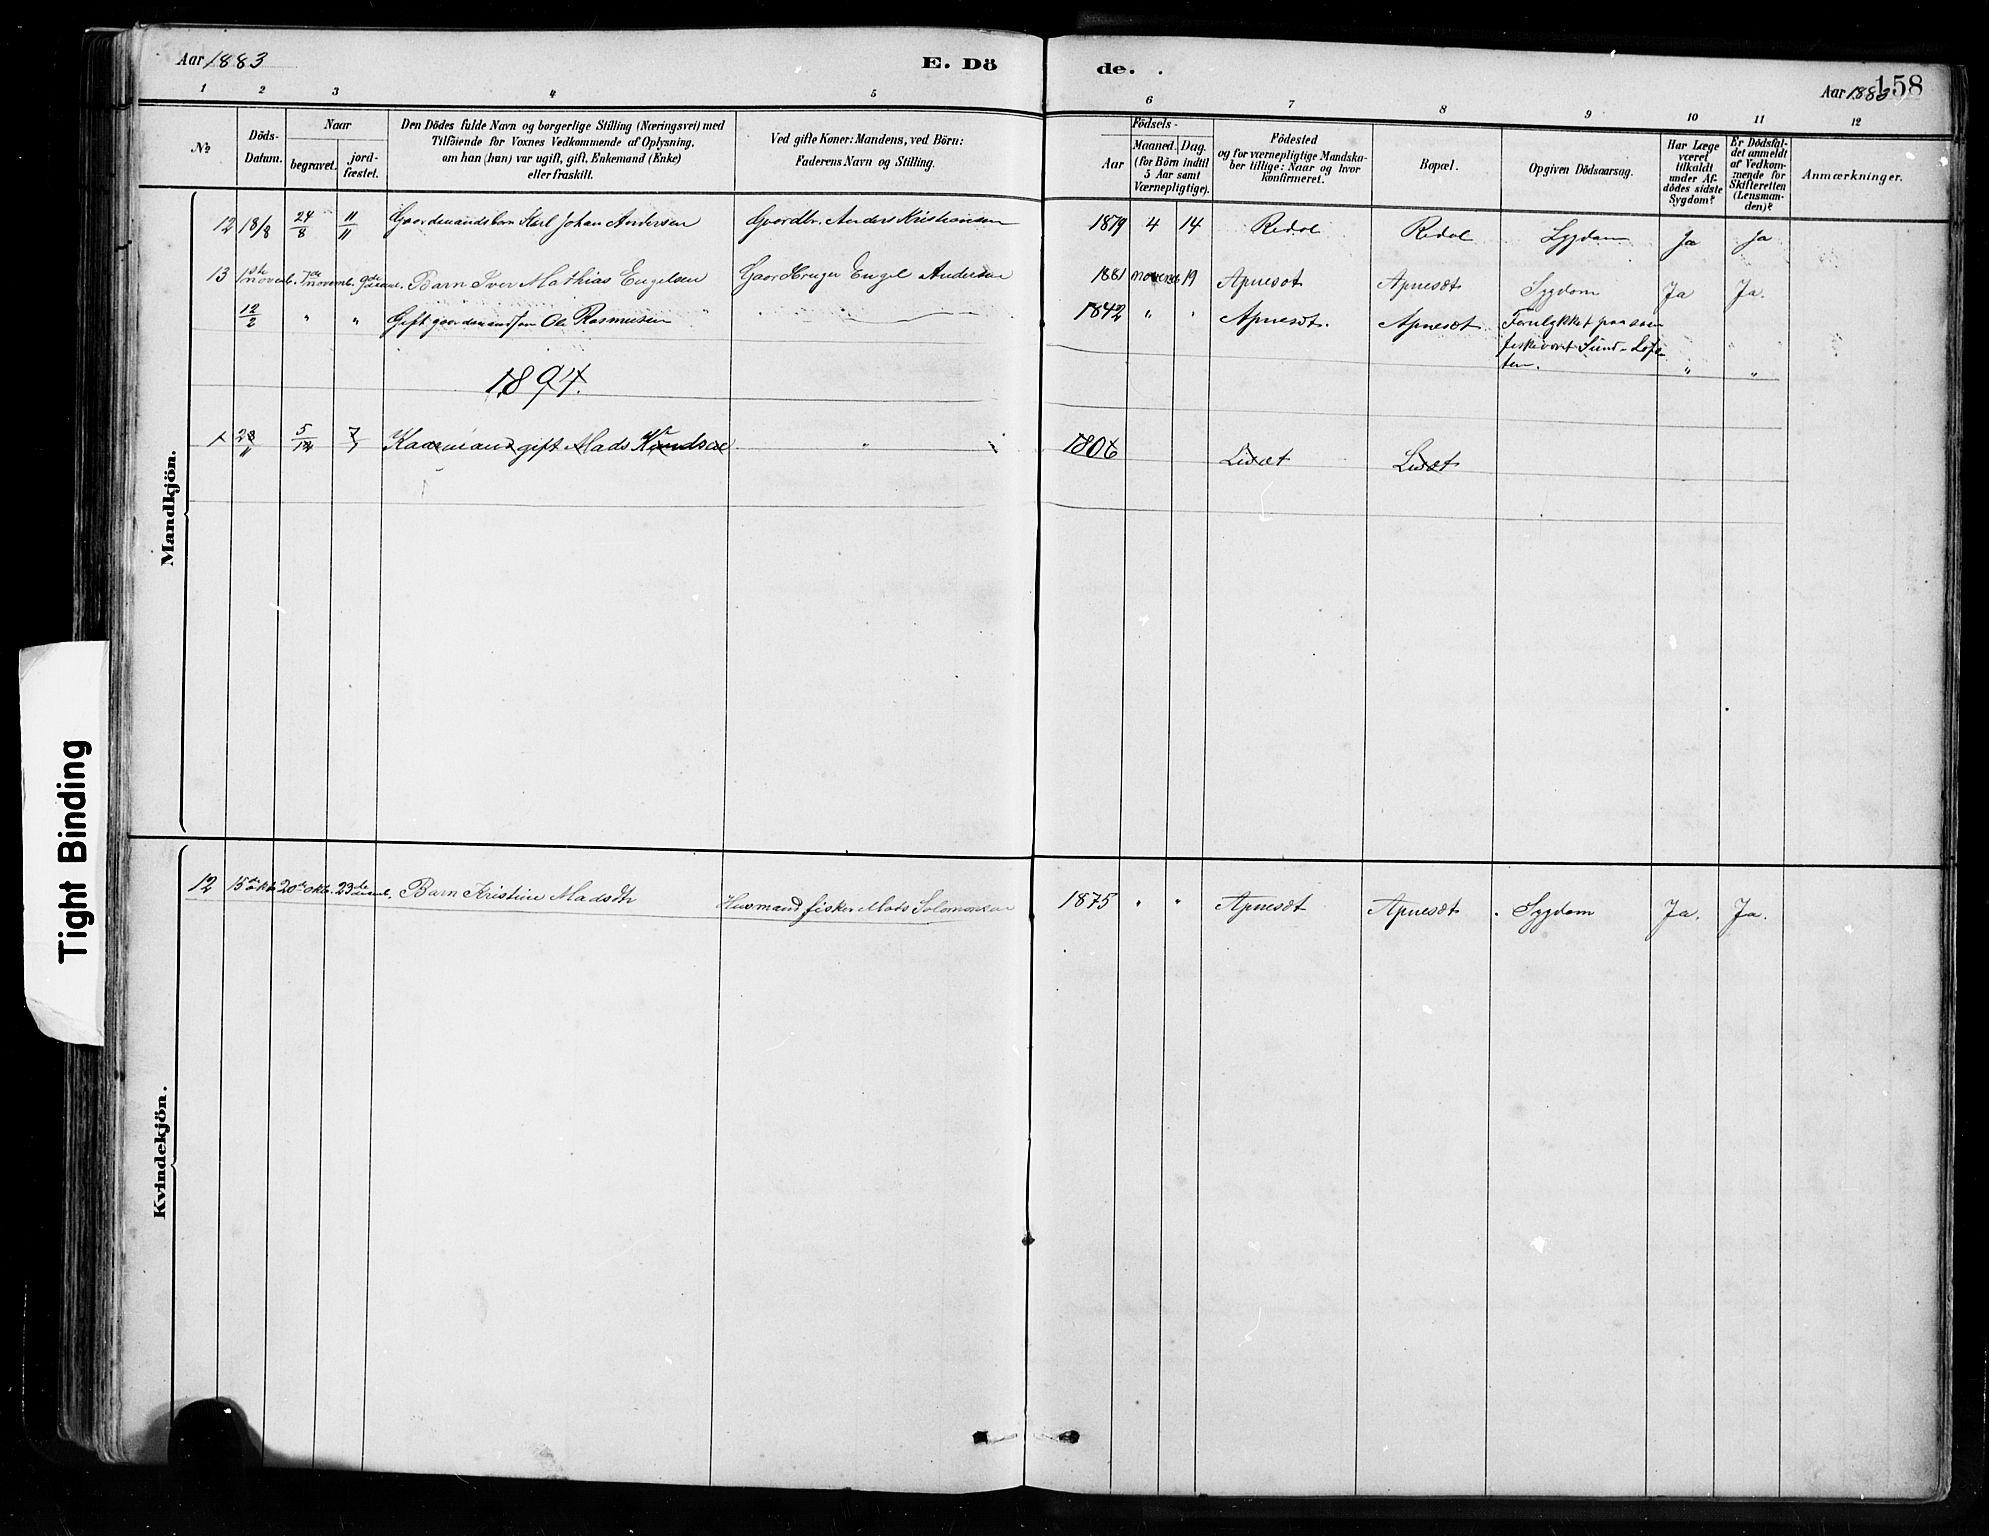 Aar 1883
E. Dö
de.
Aar 1883
158
1 2 3 4 5 6 7 8 9 10 11 12
No
Döds-
Datum.
Naar
begravet.
jord-
fæstet.
Den Dödes fulde Navn og borgerlige Stilling (Næringsvei) med
Tilföiende for Voxnes Vedkommende af Oplysning,
om han (hun) var ugift, gift, Enkemand (Enke)
eller fraskilt.
Ved gifte Koner: Mandens, ved Börn:
Faderens Navn og Stilling.
Födsels-
Aar
Maaned. Dag.
(for Börn indtil
5 Aar samt
Værnepligtige).
Födested
og for værnepligtige Mandska-
ber tillige: Naar og hvor
konfirmeret.
Bopæl.
Opgiven Dödsaarsag.
Har Læge
været
tilkaldt
under Af-
dödes sidste
Sygdom?
Er Dödsfal-
det anmeldt
af Vedkom-
mende for
Skifteretten
(Lensman-
den)?
Anmærkninger.
Mandkjön.
12 18/8 24/8 11/11 Gaardmandsbarn Karl Johan Andersen Gaardbr. Anders Kristiansen 1879 4 14 Redal Redal Sygdom Ja Ja
13 1ste novemb. 7de novemb. 9de Barn Iver Mathias Engelsen Gaardbruger Engel Andersen 1881 19 Apnesæt Apnesæt Sygdom Ja Ja.
12/2 " " Gift gaardmand Ole Rasmussen 1842 " " Apnesæt. Apnesæt Forulykket paa
fiskeværet Sund - Lofo-
ten. " "
1894.
1 5/12 Kaarmand gift Mads Knudsen " 1806
Kvindekjön.
12 15de okt. 20de okt. 23de Barn Kristine Madsdtr Husmand fisker Mads Solomonsen 1875 " " Apnesæt Apnesæt Sygdom Ja. Ja.
Tight Binding